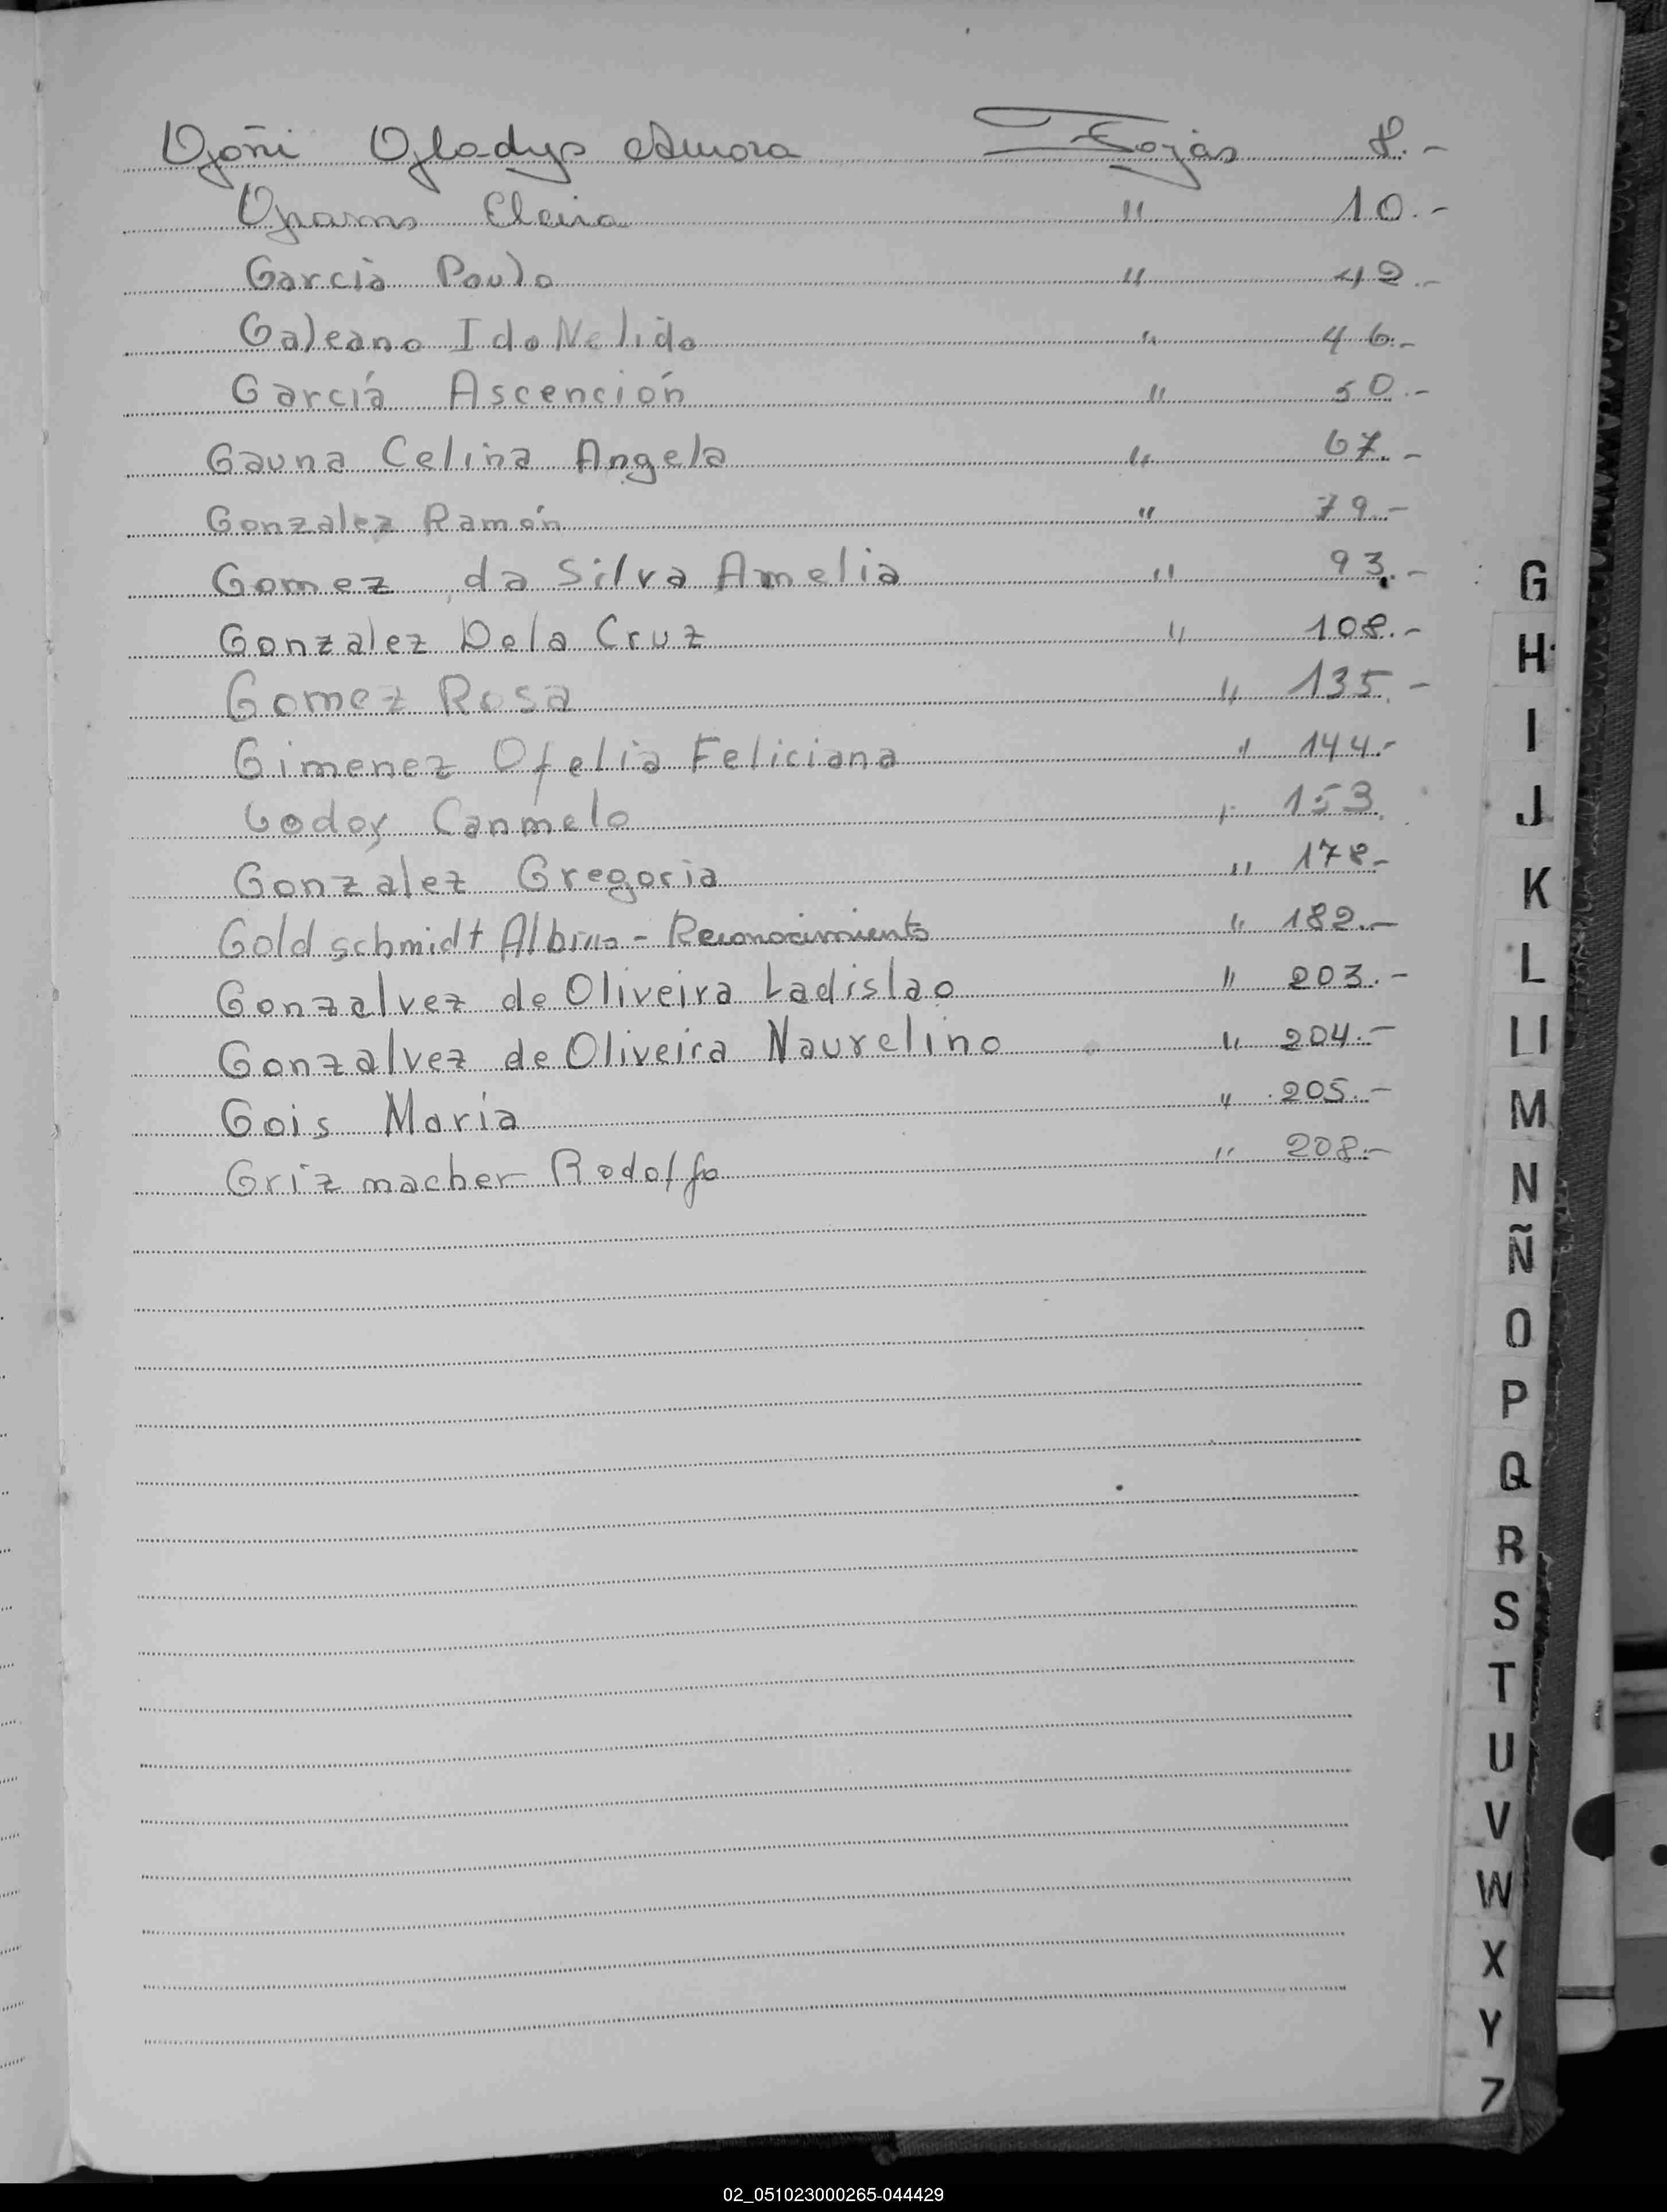 Goñi Gladys Amora Fojas 8.-
Elena " 10.-
Garcia Paula " 42.-
Galeano Ida Nelida " 46.-
García Ascención " 50.-
Gauna Celina Angela " 67.-
Gonzalez Ramón " 79.-
Gomez da Silva Amelia " 93.-
Gonzalez Dela Cruz " 108.-
Gomez Rosa " 135.-
Gimenez Ofelia Feliciana " 144.-
Godoy Canmelo " 153.
Gonzalez Gregoria " 178.-
Goldschmidt Albino - Reconocimiento " 182.-
Gonzalvez de Oliveira Ladislao " 203.-
Gonzalvez de Oliveira Naurelino " 204.-
Gois María " 205.-
Grizmacher Rodolfo " 208.-
G
H
I
J
K
L
Ll
M
N
Ñ
O
P
Q
R
S
T
U
V
W
X
Y
Z
02_051023000265-044429